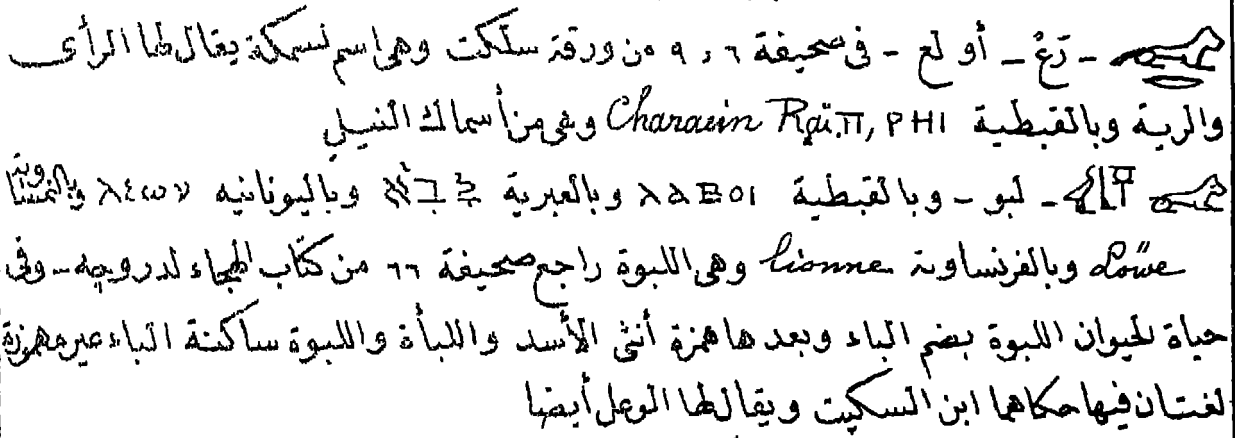 - رَغْ - أو لع - فى صحيفة ٦ ، ٩ من ورقة سلكت وهى اسم لسمكة يقال لها الرأى
والرية وبالقبطية PHI ,π Raï Characin وهى من أسماك النيل
- لبو - وبالقبطية λαBOI وبالعبرية לביא وباليونانيه λεων وبالنمساوية
Löwe وبالفرنساوية lionne وهى اللبوة راجع صحيفة ٦٦ من كتاب الهجاء لدروجه - وفى
حياة الحيوان اللبوة بضم الباء وبعدها همزة أنثى الأسد واللبأة واللبوة ساكنة الباء غير مهموزة
لغتان فيها حكاهما ابن السكيت ويقال لها الوعل أيضا